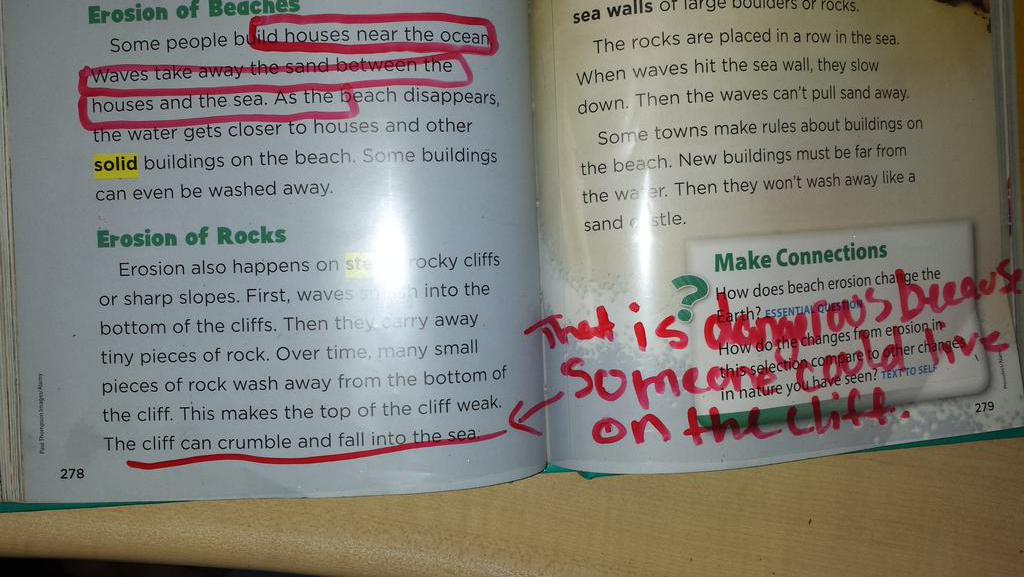 Erosion of Beaches
Some people build houses near the ocean.
Waves take away the sand between the
houses and the sea. As the beach disappears,
the water gets closer to houses and other
solid buildings on the beach. Some buildings
can even be washed away.
Erosion of Rocks
Erosion also happens on rocky cliffs
or sharp slopes. First, waves into the
bottom of the cliffs. Then they carry away
tiny pieces of rock. Over time, many small
pieces of rock wash away from the bottom of
the cliff. This makes the top of the cliff weak.
The cliff can crumble and fall into the sea.
Paul Thompson Images/Alamy
278
sea walls of large boulders or rocks.
The rocks are placed in a row in the sea.
When waves hit the sea wall, they slow
down. Then the waves can't pull sand away.
Some towns make rules about buildings on
the beach. New buildings must be far from
the water. Then they won't wash away like a
sand castle.
Make Connections
?
How does beach erosion change the
Earth? ESSENTIAL QUESTION
How do the changes from erosion in
this selection compare to other changes
in nature you have seen? TEXT TO SELF
279
That is dangerous because
someone could live
on the cliff.